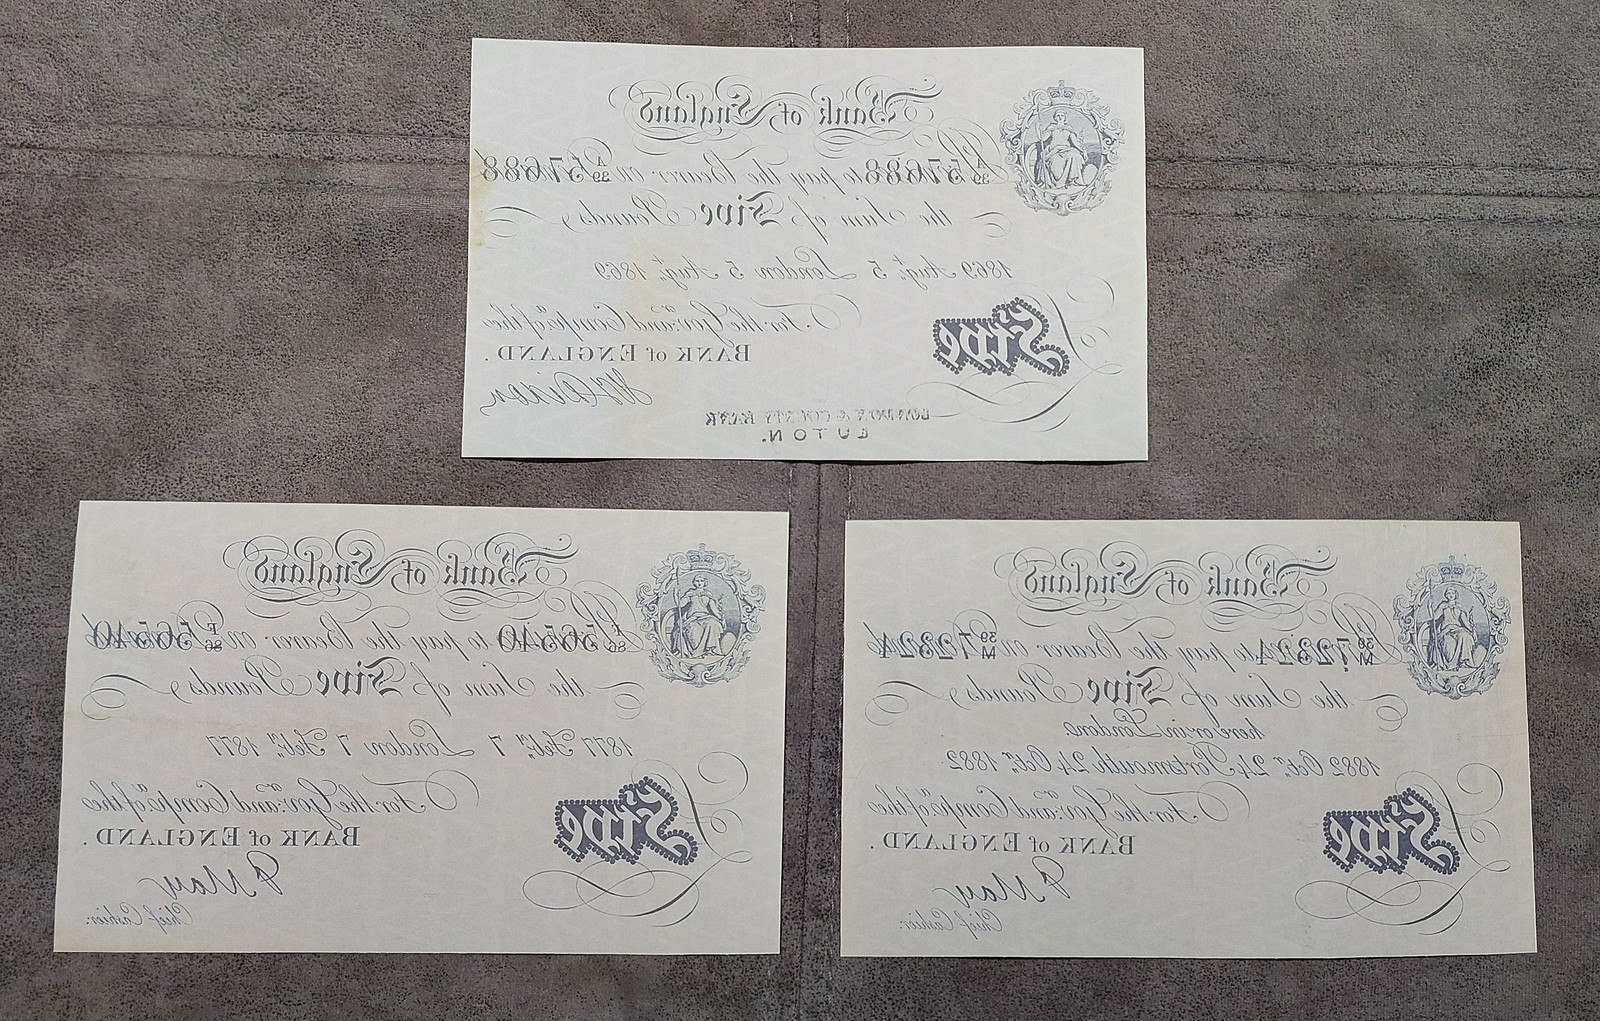 Bank of England
A/39 57688 to pay the Bearer on A/39 57688
the Sum of Five Pounds
1869 Augt. 5 London 5 Augt. 1869
For the Govr. and Compa. of the
BANK of ENGLAND.
Five
LONDON & COUNTY BANK
LUTON.
Bank of England
56540 to pay the Bearer on 56540
the Sum of Five Pounds
1877 Feby. 7 London 7 Feby. 1877
For the Govr. and Compa. of the
BANK of ENGLAND.
Five
F May
Chief Cashier.
Bank of England
39/M 72324 to pay the Bearer on 39/M 72324
the Sum of Five Pounds
here or in London
1882 Octr. 24 Portsmouth 24 Octr. 1882
For the Govr. and Compa. of the
BANK of ENGLAND.
Five
F May
Chief Cashier.